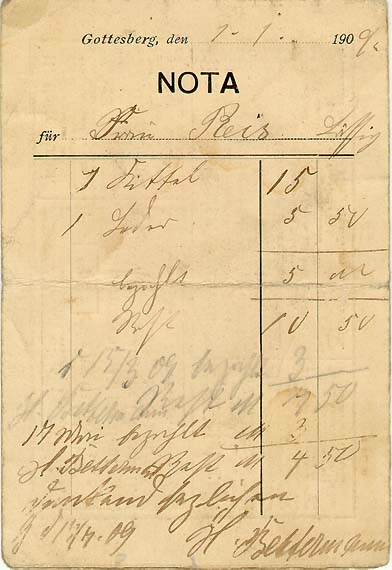 Gottesberg, den 1. 1. 1909
NOTA
für Frau Reis
1 Kittel 15
1 Leder 5 50
bezahlt 5
Rest 10 50
d 15/3 09 bezahlt 3
Rest M 7 50
17 Mai bezahlt M 3
H. Bettermann Rest M 4 50
09
H. Bettermann